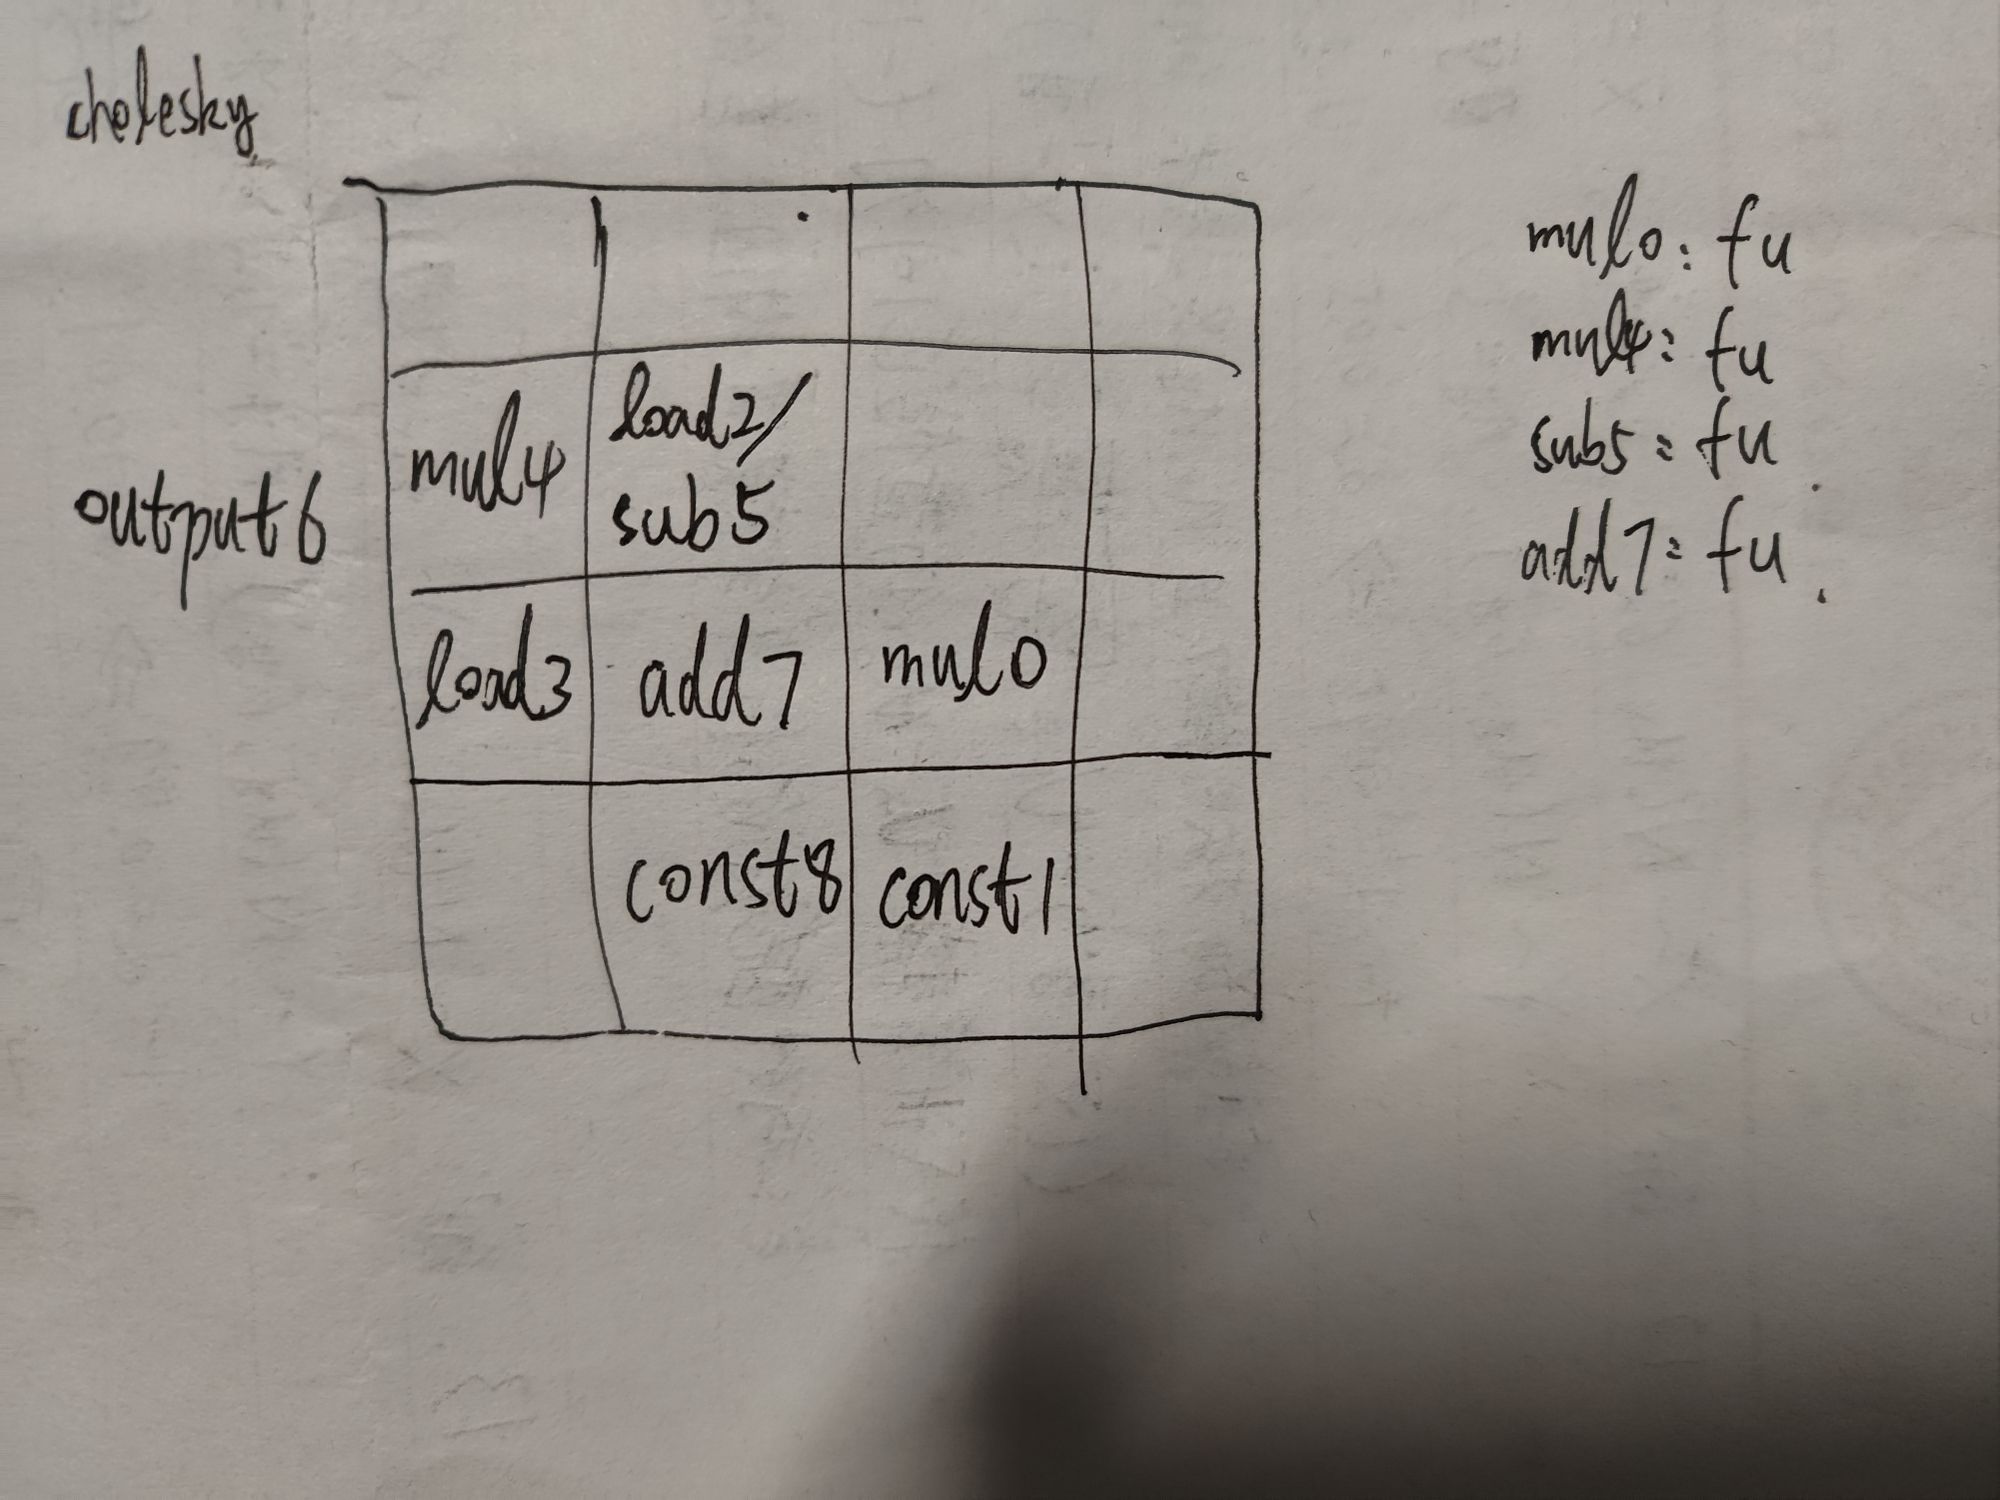 cholesky
mul0: fu
mul4: fu
sub5: fu
add7: fu
output6
mul4 load2/
sub5
load3 add7 mul0
const8 const1